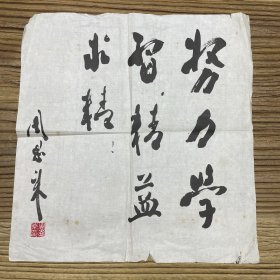 努力学
習,精益
求精!
周思来